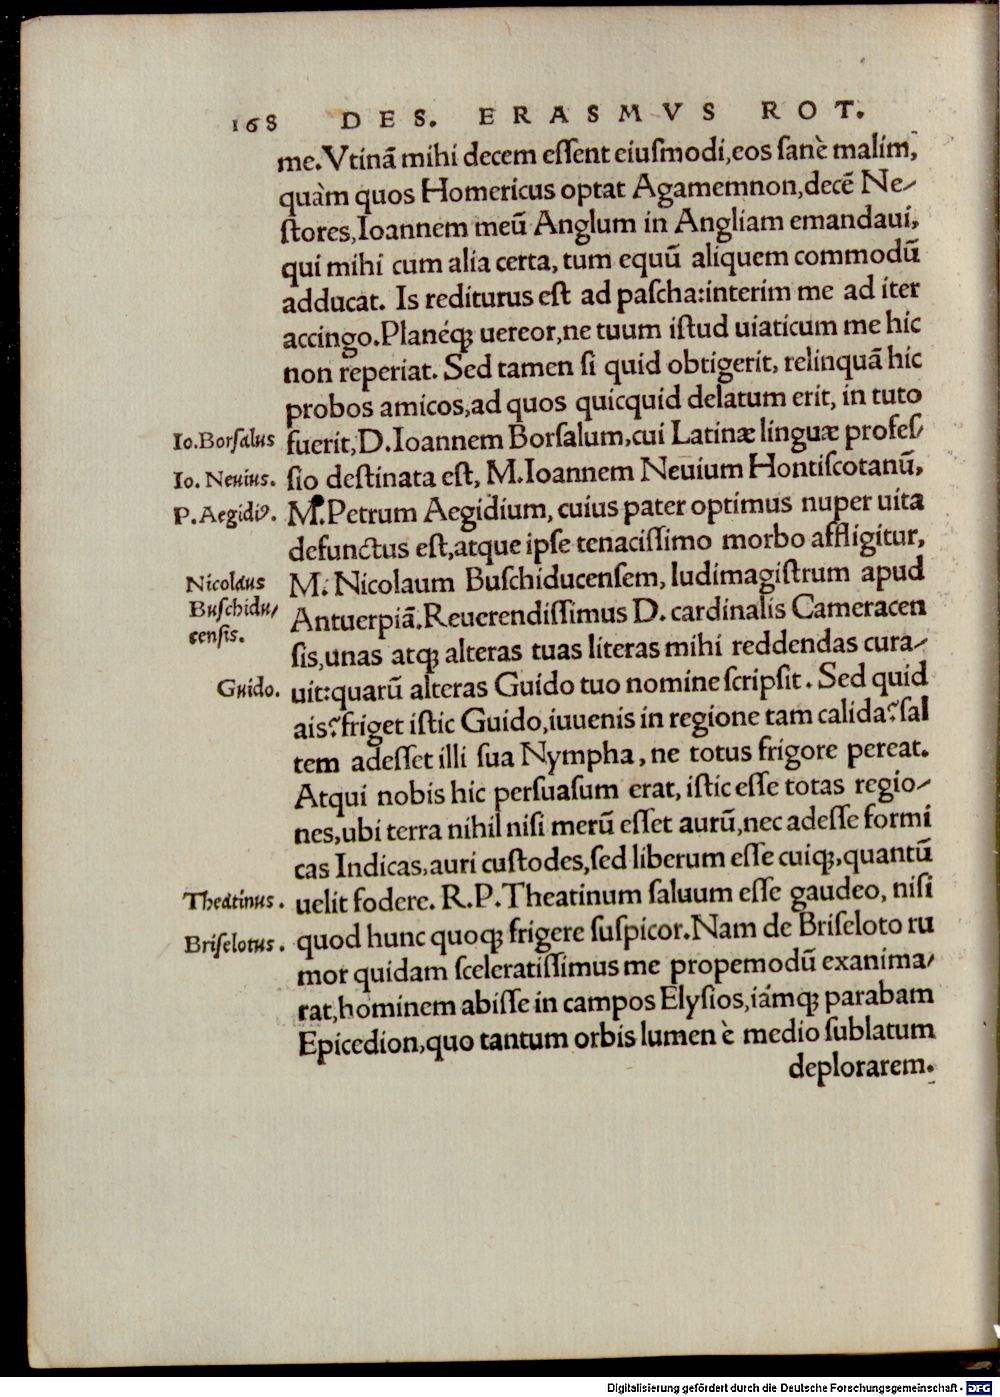 168 DES. ERASMVS ROT.
me. Vtinā mihi decem eſſent eiuſmodi, eos ſanè malim,
quàm quos Homericus optat Agamemnon, decē Ne⸗
ſtores, Ioannem meū Anglum in Angliam emandaui,
qui mihi cum alia certa, tum equū aliquem commodū
adducat. Is rediturus eſt ad paſcha: interim me ad iter
accingo. Planéq; uereor, ne tuum iſtud uiaticum me hic
non reperiat. Sed tamen ſi quid obtigerit, relinquā hic
probos amicos, ad quos quicquid delatum erit, in tuto
Io. Borſalus
fuerit, D. Ioannem Borſalum, cui Latinæ linguæ profeſ⸗
Io. Neuius.
ſio deſtinata eſt, M. Ioannem Neuium Hontiſcotanū,
P. Aegidiꝰ.
M. Petrum Aegidium, cuius pater optimus nuper uita
defunctus eſt, atque ipſe tenaciſſimo morbo affligitur,
Nicolaus
M. Nicolaum Buſchiducenſem, ludimagiſtrum apud
Buſchidu⸗
Antuerpiā. Reuerendiſſimus D. cardinalis Cameracen
cenſis.
ſis, unas atq; alteras tuas literas mihi reddendas cura⸗
Guido.
uit: quarū alteras Guido tuo nomine ſcripſit. Sed quid
ais? friget iſtic Guido, iuuenis in regione tam calida? ſal
tem adeſſet illi ſua Nympha, ne totus frigore pereat.
Atqui nobis hic perſuaſum erat, iſtic eſſe totas regio⸗
nes, ubi terra nihil niſi merū eſſet aurū, nec adeſſe formi
cas Indicas, auri cuſtodes, ſed liberum eſſe cuiq;, quantū
Theatinus.
uelit fodere. R. P. Theatinum ſaluum eſſe gaudeo, niſi
Briſelotus.
quod hunc quoq; frigere ſuſpicor. Nam de Briſeloto ru
mor quidam ſceleratiſſimus me propemodū exanima⸗
rat, hominem abiſſe in campos Elyſios, iámq; parabam
Epicedion, quo tantum orbis lumen è medio ſublatum
deplorarem.
Digitalisierung gefördert durch die Deutsche Forschungsgemeinschaft - DFG